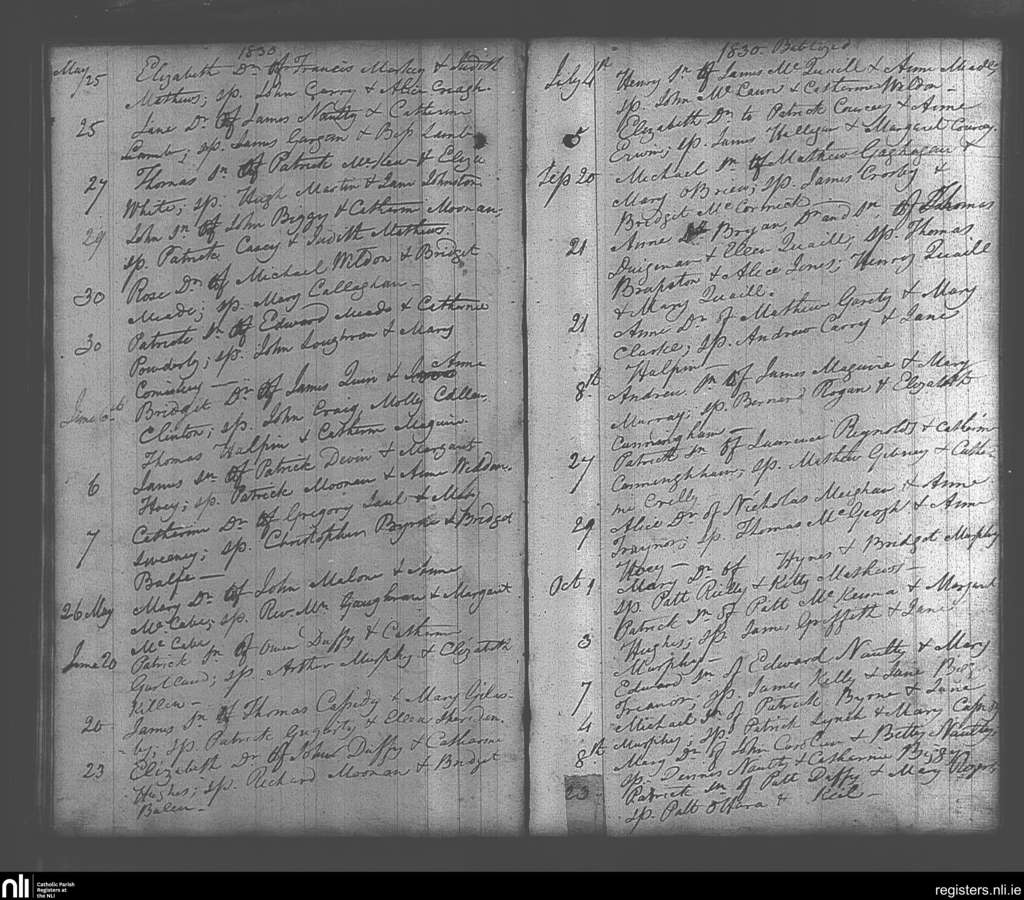 1830
May 25 Elizabeth Dr. of Francis Markey & Judith
Mathews; sp. John Carry & Alice Creagh.
25 Jane Dr. of James Naulty & Catherin
Lamb; sp. James Gargan & Bess Lamb
27 Thomas Sn. of Patrick & Eliza
White; sp. Hugh Martin & Jane Johnston.
29 John Sn. of John Biggy & Catherin Moonan;
sp. Patrick Casey & Judith Mathews.
30 Rose Dr. of Michael Weldon & Bridget
Meade; sp. Mary Callaghan—
30 Patrick Sn. of Edward Meade & Catherine
Powderly; sp. John Loughran & Mary
Comiskey—
June 6th Bridget Dr. of James Quin & Anne
Clinton; sp. John Craig Molly Cullen,
Thomas Halpin & Catherin Maguire.
6 James Sn. of Patrick Devin & Margaret
Hoey; sp. Patrick Moonan & Anne Weldon.
7 Catherin Dr. of Gregory Saul & Mary
Sweeney; sp. Christopher Byrne & Bridget
Balfe—
26 May Mary Dr. of John Malone & Anne
McCabe; sp. Rev. Mr. Gaughran & Margaret
McCabe
June 20 Patrick Sn. of Owen Duffy & Catherin
Gartland; sp. Arthur Murphy & Elizabeth
Killen—
20 James Sn. of Thomas Cassidy & Mary Gilas-
by; sp. Patrick & Ellen Sheridan.
23 Elizabeth Dr. of John Duffy & Catharine
Hughes; sp. Richard Moonan & Bridget
Balen—
1830 Babtized
July 4th Henry Sn. of James McQuaill & Anne
sp. John McCann & Catherine Weldon—
5 Elizabeth Dr. to Patrick Courcey & Anne
Erwin; sp. James Halligan & Margaret Courcey.
Sep 20 Michael Sn. of Mathew Gaghagan &
Mary OBrien; sp. James Crosby &
Bridget McCormick—
21 Anne & Bryan Dr. and Sn. of Thomas
Duigenan & Ellen Quaill; sp. Thomas
Brabston & Alice Jones; Henry Quaill
& Mary Quaill.
21 Anne Dr. of Mathew Garity & Mary
Clarke; sp. Andrew Carry & Jane
Halpin
8th Andrew Sn. of James Maguire & Mary
Murray; sp. Bernard Rogan & Elizabeth
Cunningham—
27 Patrick Sn. of Laurence Reynolds & Catherin
Cunningham; sp. Mathew Gibney & Cathe-
rine Crelly
29 Alice Dr. of Nicholas Meighan & Anne
Traynor; sp. Thomas McGeogh & Ann
Hoey—
Oct 1 Mary Dr. of Hynes & Bridget Murphy
sp. Patt Reilly & Kelly Mathews—
3 Patrick Sn. of Patt McKenna & Margaret
Hughes; sp. James Griffith & Jane
Murphy—
7 Edward Sn. of Edward Naulty & Mary
Treanor; sp. James Kelly & Jane
4 Michael Sn. of Patrick Byrne & Jane
Murphy; sp. Patrick Lynch & Mary
8th Mary Dr. of John Carolan & Betty Naulty;
sp. Dennis Naulty & Catharine Biggy
23 Patrick Sn. of Patt Duffy & Mary Rogers;
sp. Patt OHara & Keil—
nli
Catholic Parish
Registers at
the NLI
registers.nli.ie